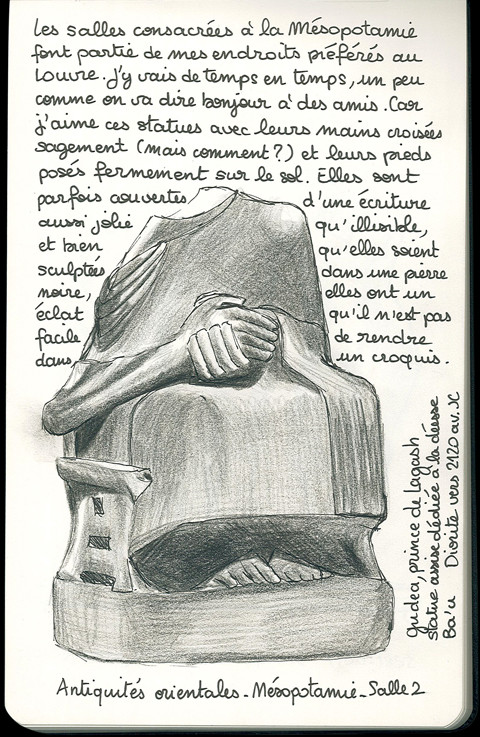 Les salles consacrées à la Mésopotamie
font partie de mes endroits préférés au
Louvre. J'y vais de temps en temps, un peu
comme on va dire bonjour à des amis. Car
j'aime ces statues avec leurs mains croisées
sagement (mais comment ?) et leurs pieds
posés fermement sur le sol. Elles sont
parfois couvertes d'une écriture
aussi jolie qu'illisible,
et bien qu'elles soient
sculptées dans une pierre
noire, elles ont un
éclat qu'il n'est pas
facile de rendre
dans un croquis.
Gudea, prince de Lagash
statue assise dédiée à la déesse
Ba'u Diorite vers 2120 av. JC
Antiquités orientales - Mésopotamie - Salle 2